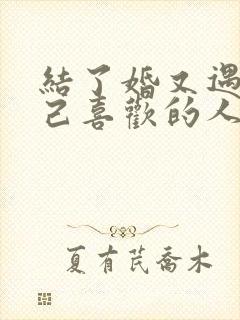 結了婚又遇
己喜歡的人
夏有芪喬木